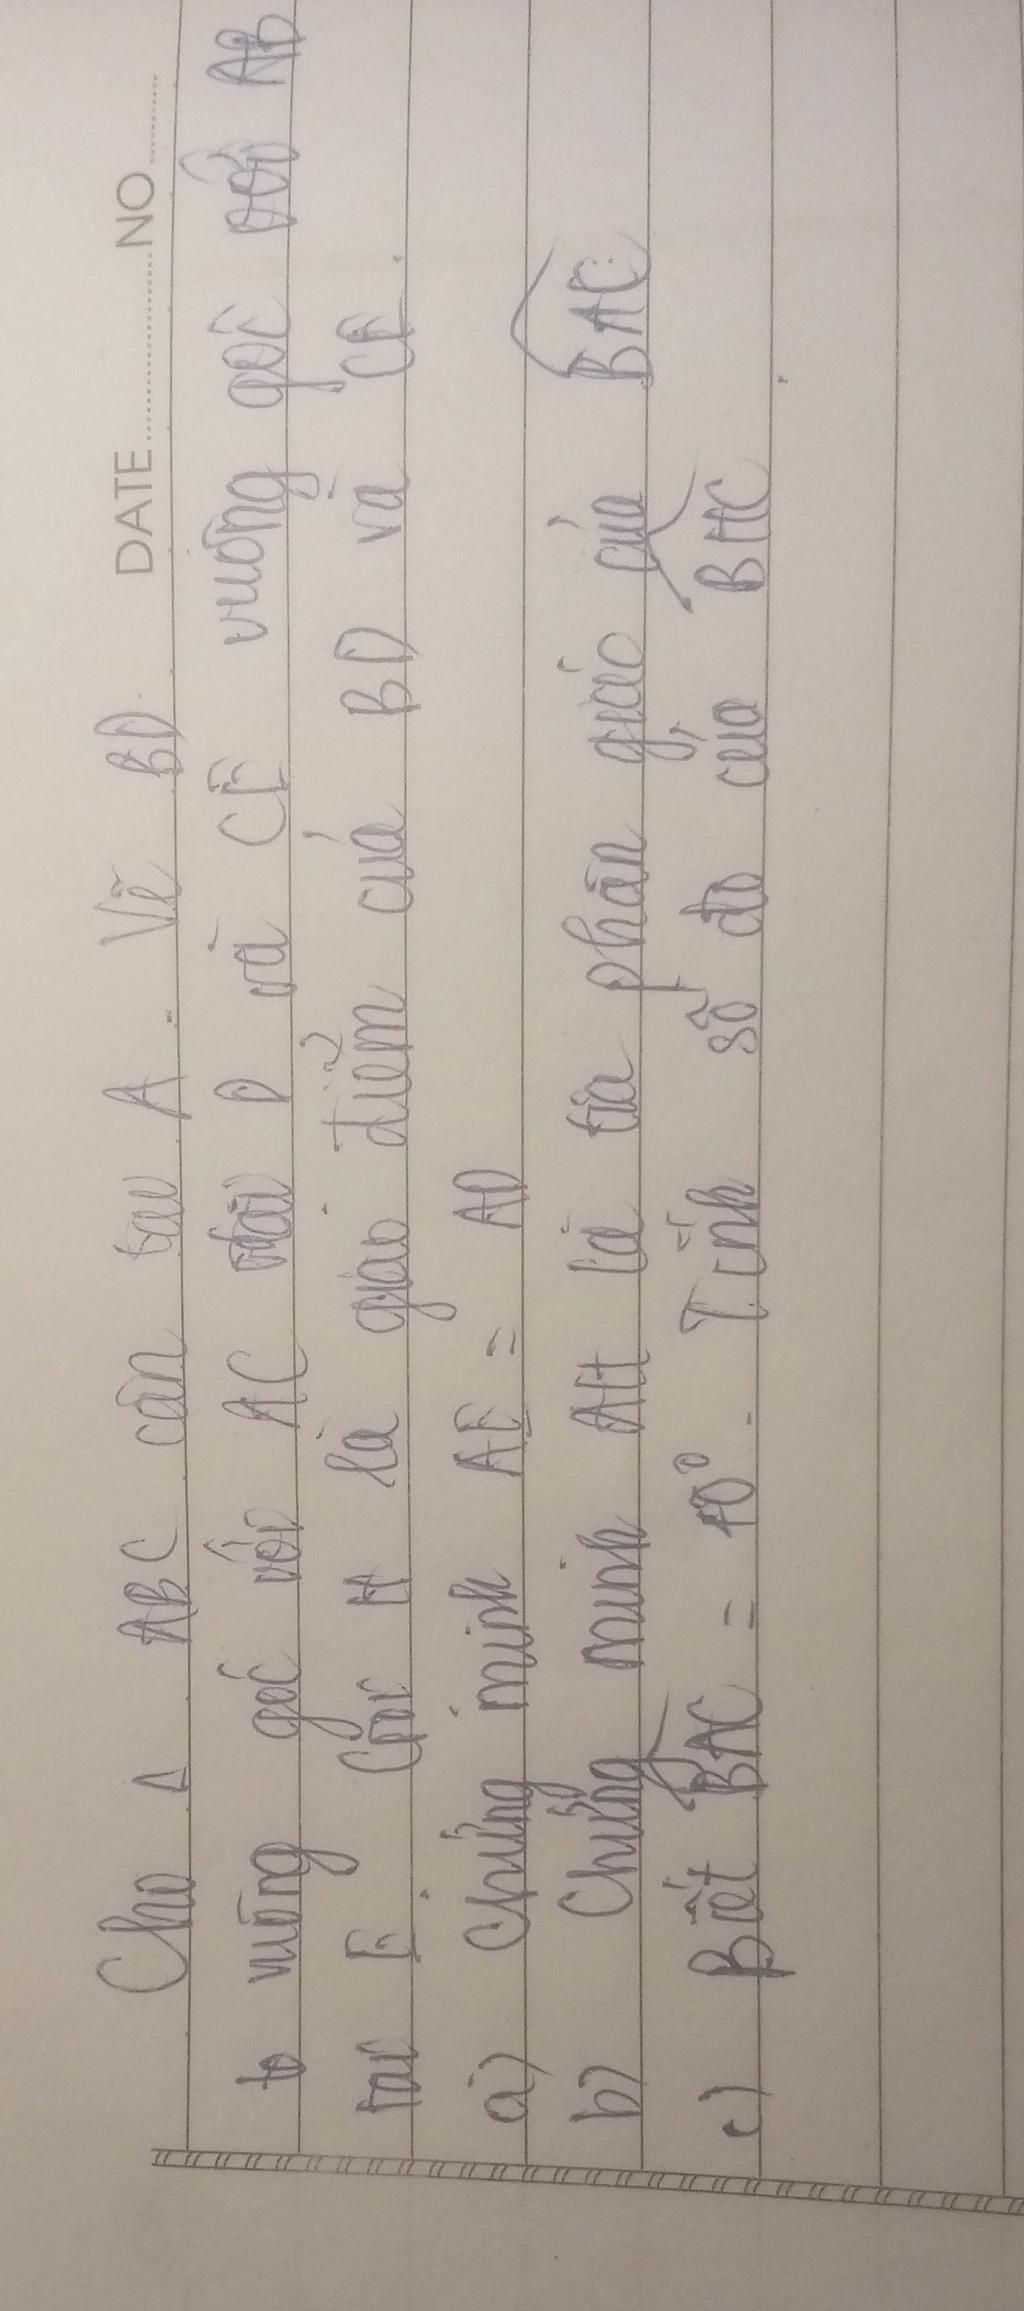 DATE NO
Cho Δ ABC cân tại A. Vẽ BD
vuông góc với AC tại D và CE vuông góc với AB
tại E. Gọi H là giao điểm của BD và CE.
a) Chứng minh AE = AD
b) Chứng minh AH là tia phân giác của BAC
c) Biết BAC = 40°. Tính số đo của BHC